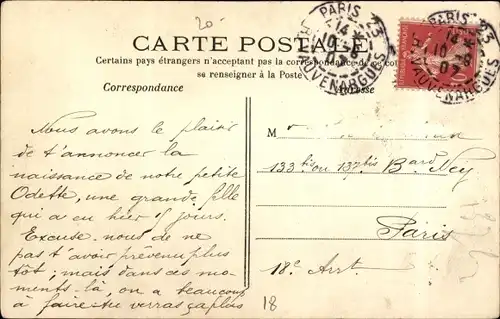 20-
PARIS
14
10-6
07
R. VAUVENARGUES
PARIS 23
14
10-6
VAUVENARGUES
CARTE POSTALE
Certains pays étrangers n'acceptant pas la correspondance de ce côté
se renseigner à la Poste
Correspondance
Adresse
Nous avons le plaisir
de t'annoncer la
naissance de notre petite
Odette, une grande fille
qui as eu hier jours.
Excuse-nous de ne
pas t'avoir prévenu plus
tôt; mais dans ces mo-
ments-là, on a beaucoup
à faire. Tu verras ça plus
M
133 bis ou 137 bis Bard Ney
Paris
18e Arrt.
18